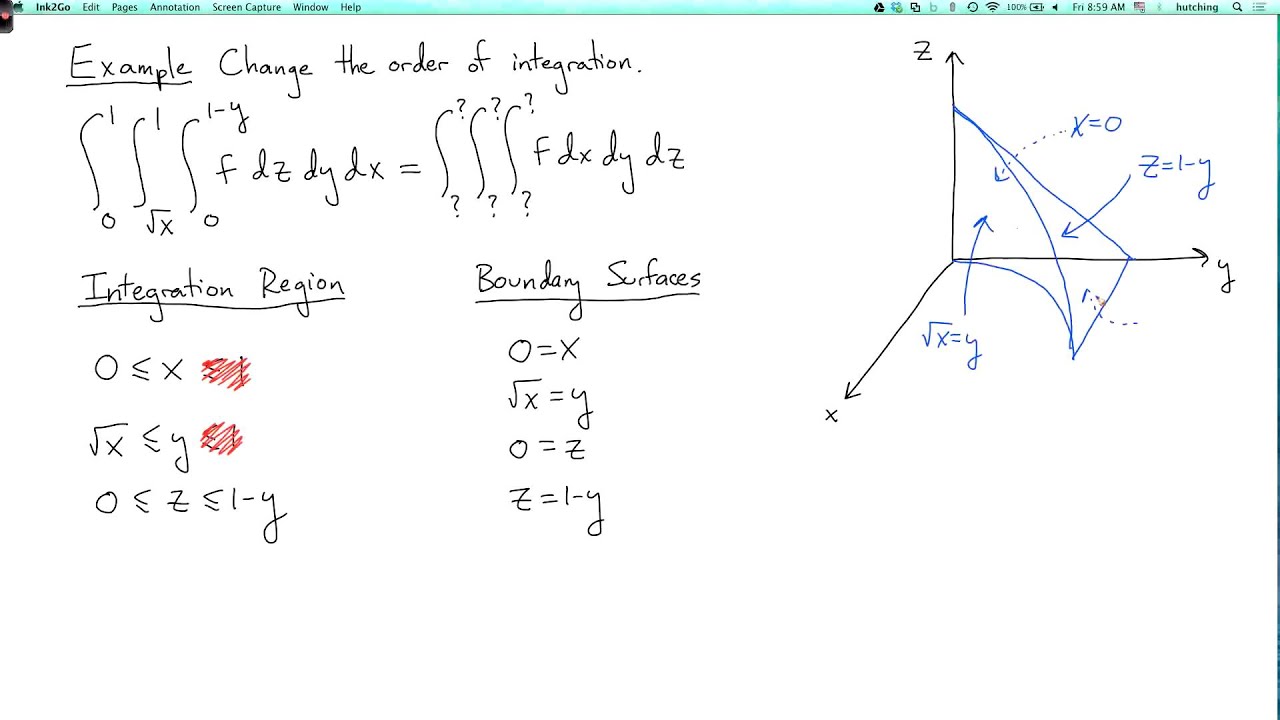 Ink2Go Edit Pages Annotation Screen Capture Window Help 100% Fri 8:59 AM hutching
Example Change the order of integration.
∫₀¹ ∫_√x^1 ∫₀^(1-y) f dz dy dx = ∫_?^? ∫_?^? ∫_?^? f dx dy dz
Integration Region
0 ≤ x
√x ≤ y
0 ≤ z ≤ 1-y
Boundary Surfaces
0 = x
√x = y
0 = z
z = 1-y
z
x=0
z=1-y
y
√x=y
x